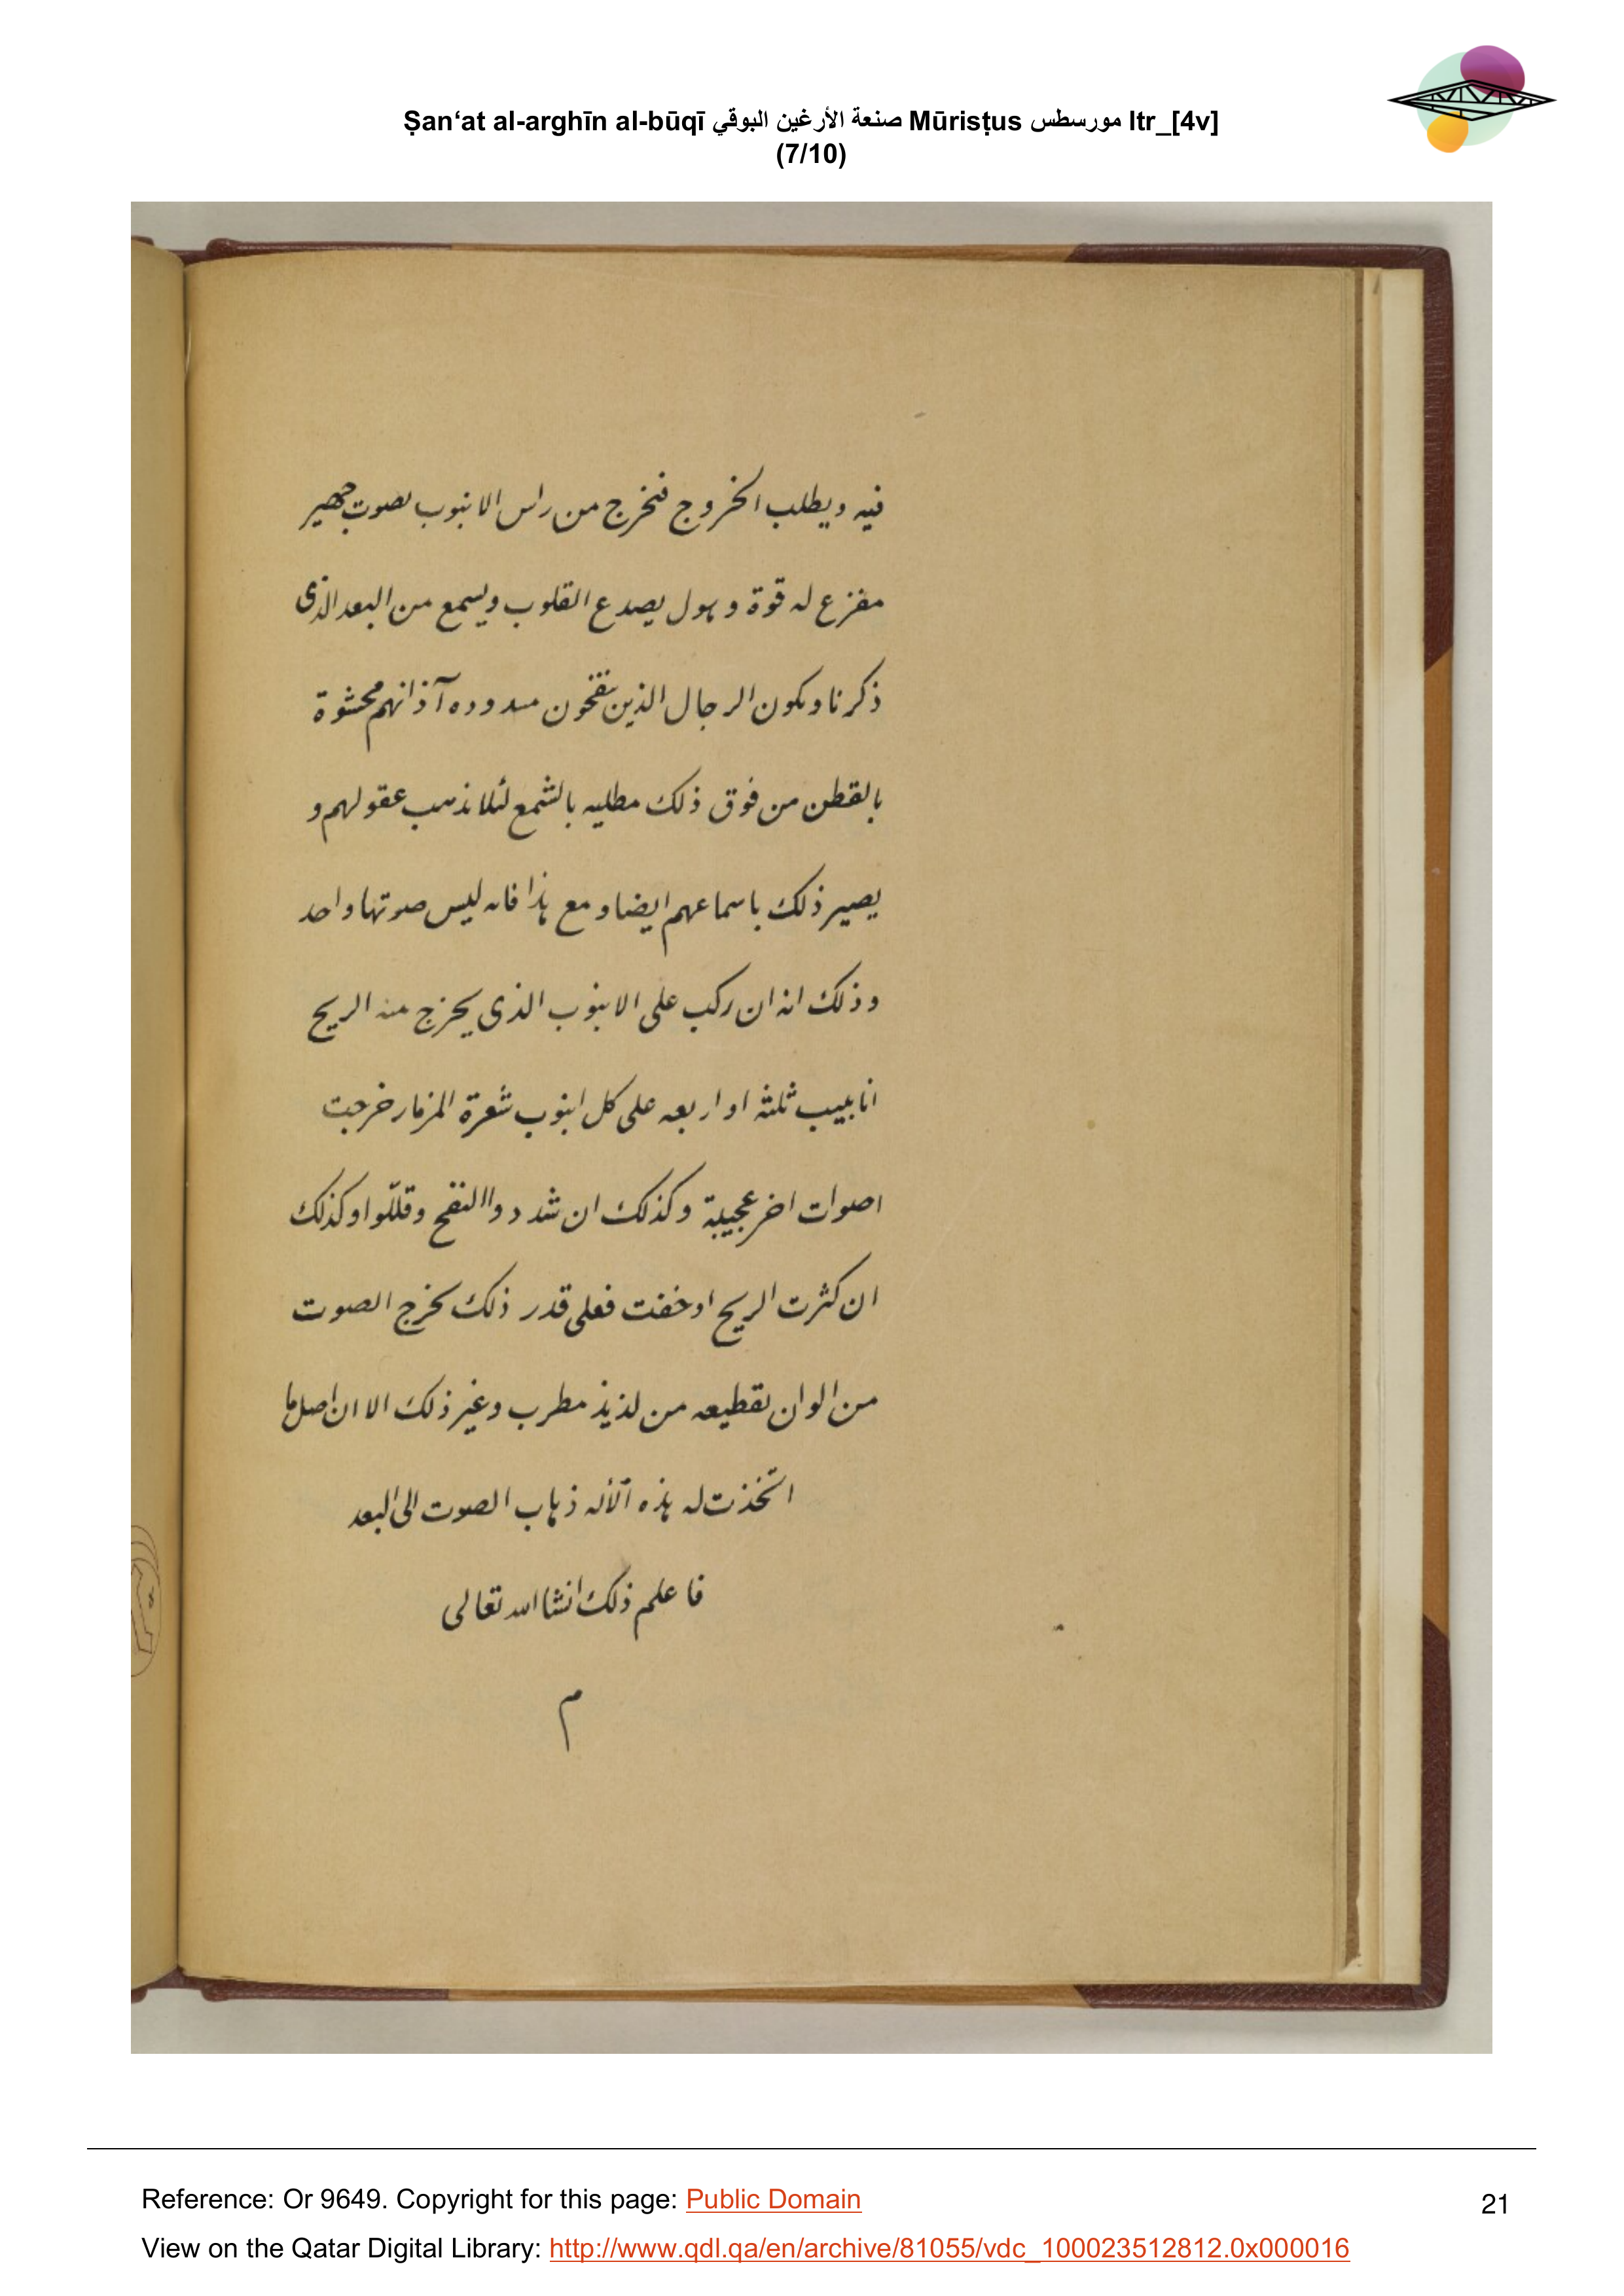 Ṣan‘at al-arghīn al-būqī صنعة الأرغين البوقي Mūrisṭus مورسطس ltr_[4v]
(7/10)
فيه ويطلب الخروج فتخرج من راس الانبوب بصوت جهير
مفزع له قوة وهول يصدع القلوب ويسمع من البعد الذى
ذكرنا ويكون الرجال الذين ينفخون مسدوده آذانهم محشوة
بالقطن من فوق ذلك مطليه بالشمع لئلا تذهب عقولهم و
يصير ذلك باسماعهم ايضا ومع هذا فانه ليس صوتها واحد
وذلك انه ان ركب على الانبوب الذى يخرج منه الريح
انابيب ثلثه او اربعه على كل انبوب شعرة المزمار خرجت
اصوات اخر عجيبة وكذلك ان شددوا النفخ وقللوا وكذلك
ان كثرت الريح او خفت فعلى قدر ذلك يخرج الصوت
من الوان تقطيعه من لذيذ مطرب وغير ذلك الا ان اصل ما
اتخذت له هذه الآله ذهاب الصوت الى البعد
فاعلم ذلك انشا الله تعالى
م
Reference: Or 9649. Copyright for this page: Public Domain
21
View on the Qatar Digital Library: http://www.qdl.qa/en/archive/81055/vdc_100023512812.0x000016